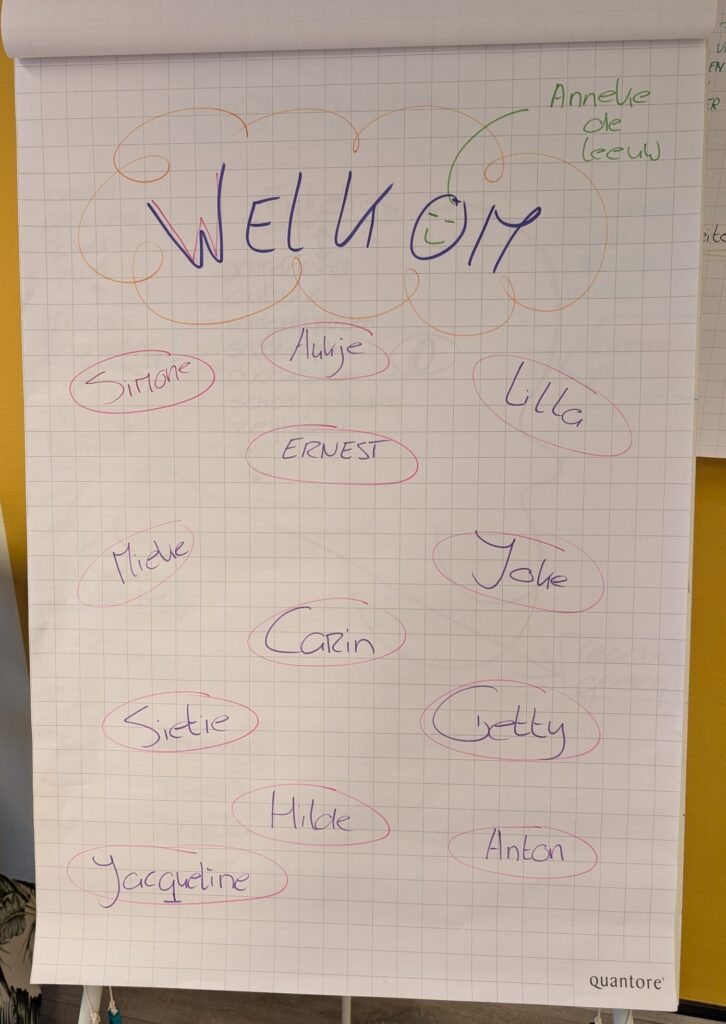 Anneke
de
leeuw
WELKOM
Simone
Aukje
Lilla
ERNEST
Mieke
Joke
Carin
Sietie
Getty
Hilde
Anton
Jacqueline
quantore